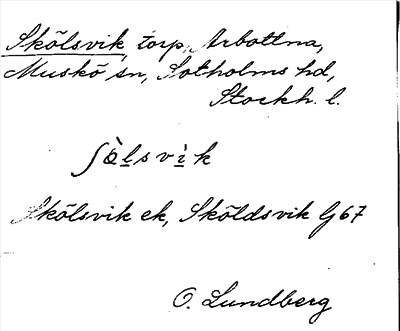 Skölsvik, torp, Arbottna,
Muskö sn, Sotholms hd,
Stockh. l.
ʃö̀lsvìk
Skölsvik ek, Sköldsvik G67
O. Lundberg